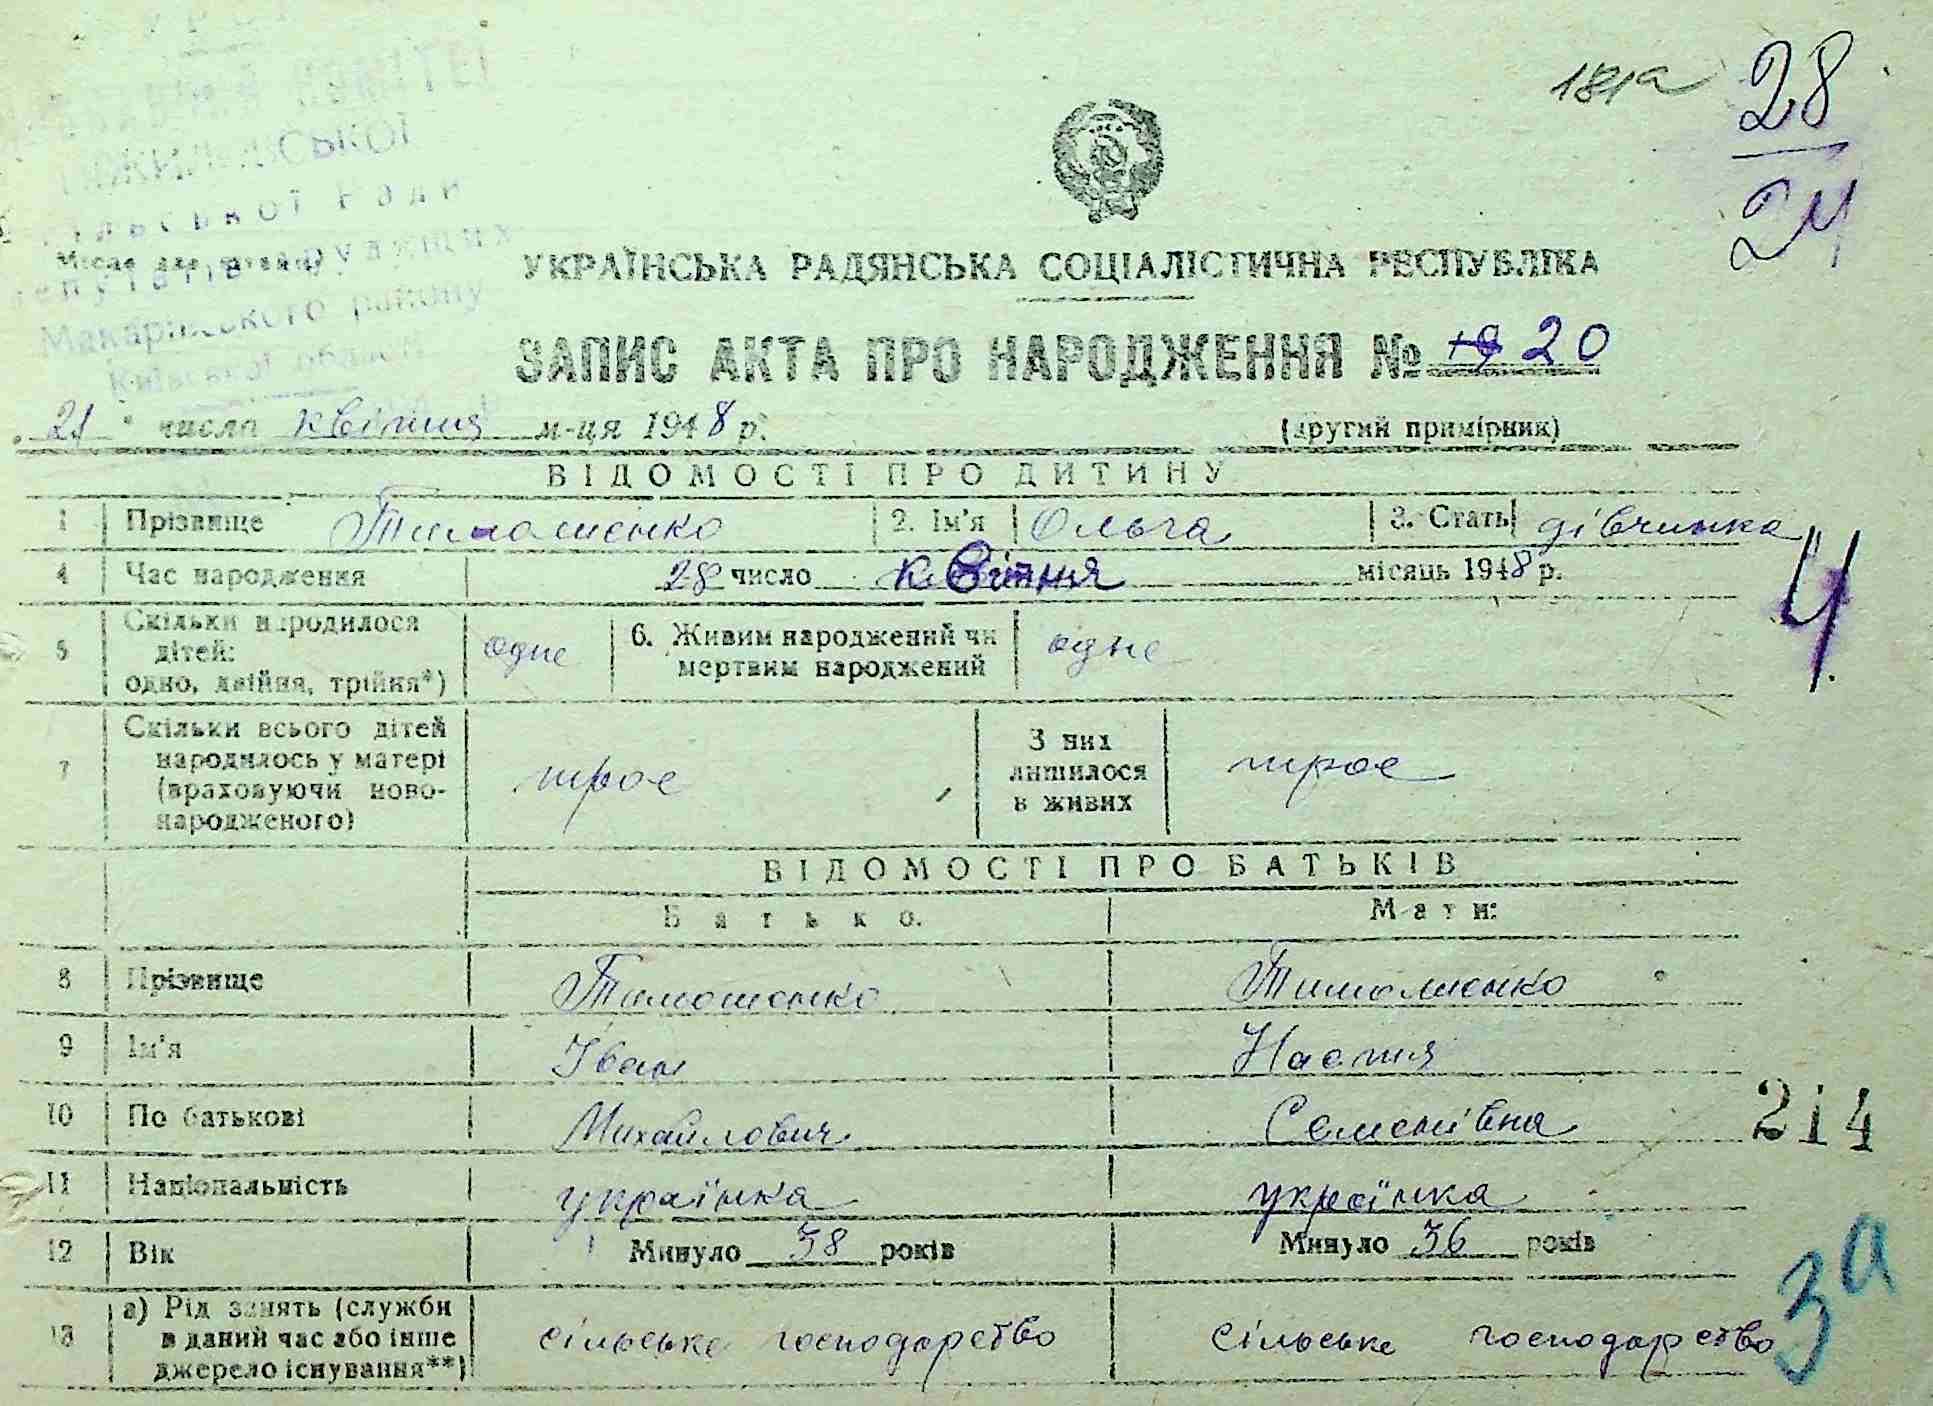 181а 28
24
сільської Ради
Місце для штампу
депутатів трудящих
Макарівського району
Київської області
УКРАЇНСЬКА РАДЯНСЬКА СОЦІАЛІСТИЧНА РЕСПУБЛІКА
ЗАПИС АКТА ПРО НАРОДЖЕННЯ № 19 20
"21" числа квітня м-ця 1948 р. (другий примірник)
ВІДОМОСТІ ПРО ДИТИНУ
1 Прізвище Тимошенко 2. Ім'я Ольга 3. Стать дівчинка
4 Час народження 28 число квітня місяць 1948 р.
4
5 Скільки народилося дітей: одно, двійня, трійня*) одне 6. Живим народжений чи мертвим народжений одне
7 Скільки всього дітей народилось у матері (враховуючи новонародженого) троє З них лишилося в живих троє
ВІДОМОСТІ ПРО БАТЬКІВ
Батько. Мати:
8 Прізвище Тимошенко Тимошенко
9 Ім'я Іван Настя
10 По батькові Михайлович Семенівна
214
11 Національність українка українка
12 Вік Минуло 38 років Минуло 36 років
3а
13 а) Рід занять (служби в даний час або інше джерело існування**) сільське господарство сільське господарство